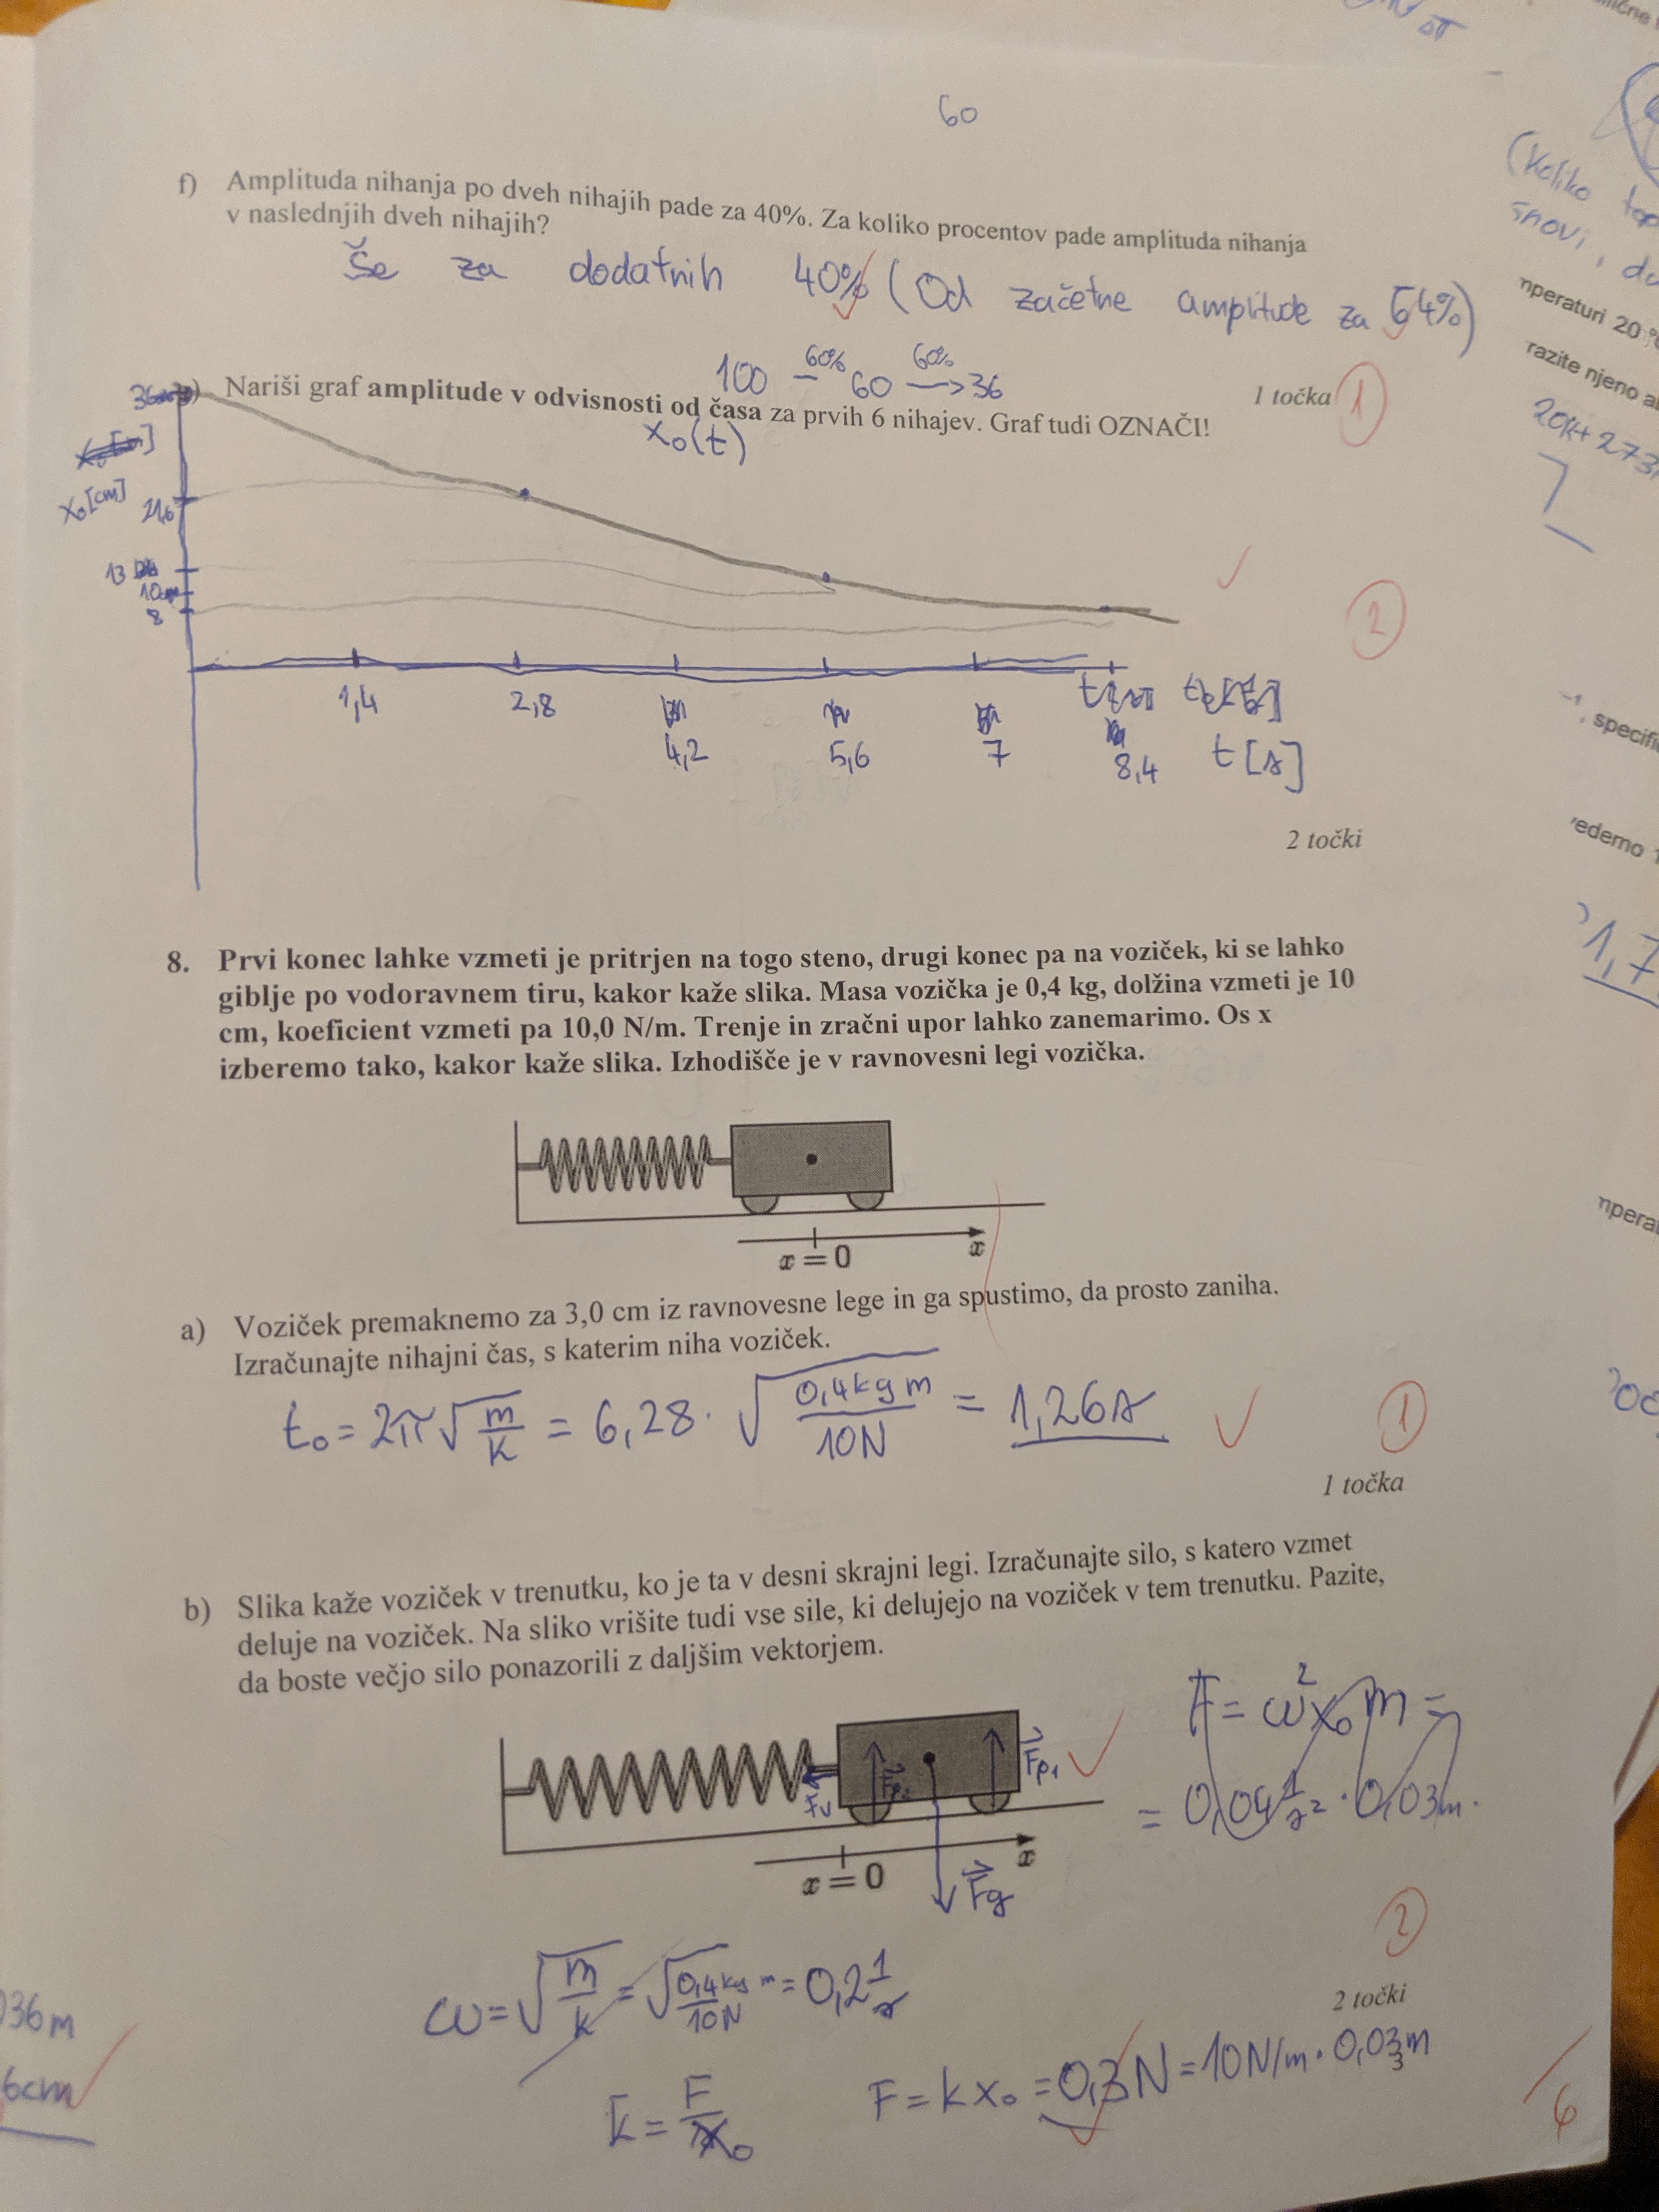 60
f) Amplituda nihanja po dveh nihajih pade za 40%. Za koliko procentov pade amplituda nihanja
v naslednjih dveh nihajih?
Še za dodatnih 40% (Od začetne amplitude za 64%)
100 60% 60 60% 36
Nariši graf amplitude v odvisnosti od časa za prvih 6 nihajev. Graf tudi OZNAČI!
1 točka
1
x₀(t)
36
x₀[cm]
21,6
13
10cm
8
2
1,4 2,8
4,2 5,6 7 8,4 t[s]
2 točki
8. Prvi konec lahke vzmeti je pritrjen na togo steno, drugi konec pa na voziček, ki se lahko
giblje po vodoravnem tiru, kakor kaže slika. Masa vozička je 0,4 kg, dolžina vzmeti je 10
cm, koeficient vzmeti pa 10,0 N/m. Trenje in zračni upor lahko zanemarimo. Os x
izberemo tako, kakor kaže slika. Izhodišče je v ravnovesni legi vozička.
x = 0 x
a) Voziček premaknemo za 3,0 cm iz ravnovesne lege in ga spustimo, da prosto zaniha.
Izračunajte nihajni čas, s katerim niha voziček.
t₀ = 2π√(m/k) = 6,28 · √(0,4kg m/10N) = 1,26s
1
1 točka
b) Slika kaže voziček v trenutku, ko je ta v desni skrajni legi. Izračunajte silo, s katero vzmet
deluje na voziček. Na sliko vrišite tudi vse sile, ki delujejo na voziček v tem trenutku. Pazite,
da boste večjo silo ponazorili z daljšim vektorjem.
F = ω²x₀ m =
= 0,04 1/s² · 0,03m ·
Fv Fp₂ Fp₁
x = 0 x
Fg
2
2 točki
ω = √(m/k) = √(0,4kg m/10N) = 0,2 1/s
k = F/x₀
F = kx₀ = 0,3N = 10N/m · 0,03m
/6
(koliko
snovi,
mperaturi 20
razite njeno
20K+273
specifi
edemo
1,7
mpera
036m
6cm